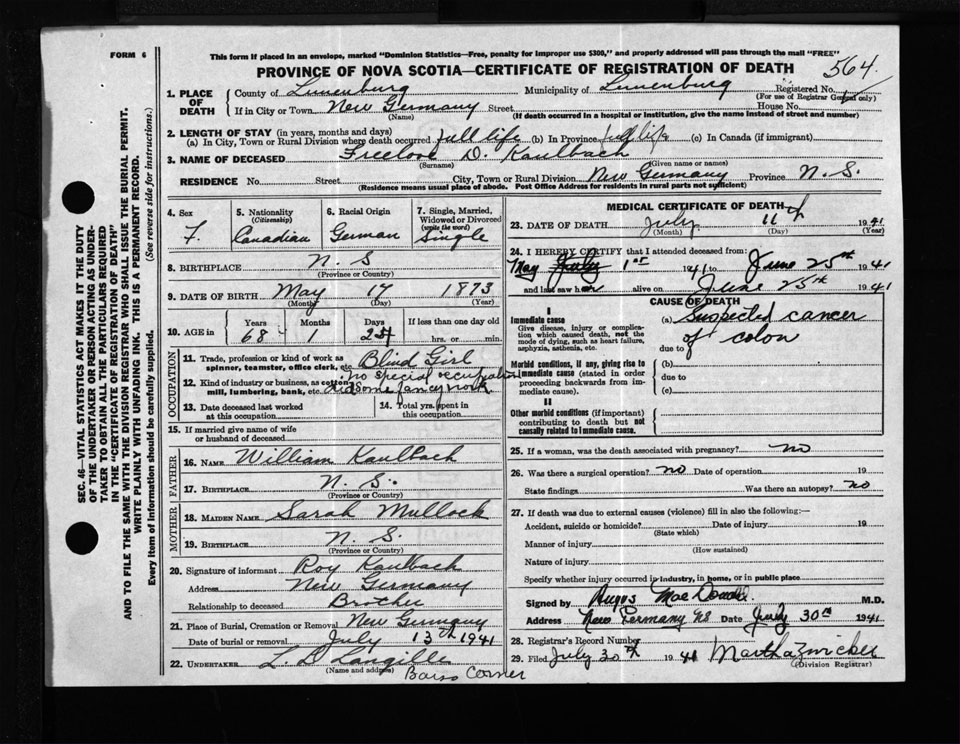 FORM 6
This form if placed in an envelope, marked "Dominion Statistics—Free, penalty for improper use $300," and properly addressed will pass through the mail "FREE"
PROVINCE OF NOVA SCOTIA—CERTIFICATE OF REGISTRATION OF DEATH
564
1. PLACE OF DEATH County of Lunenburg Municipality of Lunenburg Registered No.
(For use of Registrar General only)
If in City or Town New Germany Street House No.
(Name) (If death occurred in a hospital or institution, give the name instead of street and number)
2. LENGTH OF STAY (in years, months and days)
(a) In City, Town or Rural Division where death occurred full life (b) In Province full life (c) In Canada (if immigrant)
3. NAME OF DECEASED Freelove D. Kaulbach
(Surname) (Given name or names)
RESIDENCE No. Street City, Town or Rural Division New Germany Province N.S.
(Residence means usual place of abode. Post Office Address for residents in rural parts not sufficient)
4. Sex F.
5. Nationality (Citizenship) Canadian
6. Racial Origin German
7. Single, Married, Widowed or Divorced (write the word) Single
8. BIRTHPLACE N.S
(Province or Country)
9. DATE OF BIRTH May 17 1873
(Month) (Day) (Year)
10. AGE in Years 68 Months 1 Days 24 If less than one day old hrs. or min.
OCCUPATION
11. Trade, profession or kind of work as spinner, teamster, office clerk, etc. Blid Girl
no special occupation
12. Kind of industry or business, as cotton mill, lumbering, bank, etc. did some fancy work.
13. Date deceased last worked at this occupation
14. Total yrs. spent in this occupation
15. If married give name of wife or husband of deceased
FATHER
16. NAME William Kaulbach
17. BIRTHPLACE N.S.
(Province or Country)
MOTHER
18. MAIDEN NAME Sarah Mullock
19. BIRTHPLACE N.S.
(Province or Country)
20. Signature of informant Roy Kaulbach
Address New Germany
Relationship to deceased Brother
21. Place of Burial, Cremation or Removal New Germany
Date of burial or removal July 13th 1941
22. UNDERTAKER L. D
(Name and address) Corner
MEDICAL CERTIFICATE OF DEATH
23. DATE OF DEATH July 11th 1941
(Month) (Day) (Year)
24. I HEREBY CERTIFY that I attended deceased from:
May 1st 1941 to June 25th 1941
and last saw her alive on June 25th 1941
CAUSE OF DEATH
I
Immediate cause (a) Suspected cancer
Give disease, injury or complication which caused death, not the mode of dying, such as heart failure, asphyxia, asthenia, etc.
of colon
due to
Morbid conditions, if any, giving rise to immediate cause (stated in order proceeding backwards from immediate cause).
(b)
due to
(c)
II
Other morbid conditions (if important) contributing to death but not causally related to immediate cause.
25. If a woman, was the death associated with pregnancy? no
26. Was there a surgical operation? no Date of operation 19
State findings Was there an autopsy? no
27. If death was due to external causes (violence) fill in also the following:—
Accident, suicide or homicide? Date of injury 19
(State which)
Manner of injury
(How sustained)
Nature of injury
Specify whether injury occurred in industry, in home, or in public place
Signed by Angus MacDonald. M.D.
Address New Germany NS Date July 30th 1941
28. Registrar's Record Number
29. Filed July 30th 1941 Martha Zwicker
(Division Registrar)
SEC. 46—VITAL STATISTICS ACT MAKES IT THE DUTY
OF THE UNDERTAKER OR PERSON ACTING AS UNDER-
TAKER TO OBTAIN ALL THE PARTICULARS REQUIRED
IN THE "CERTIFICATE OF REGISTRATION OF DEATH"
AND TO FILE THE SAME WITH THE DIVISION REGISTRAR WHO SHALL ISSUE THE BURIAL PERMIT.
WRITE PLAINLY WITH UNFADING INK. THIS IS A PERMANENT RECORD.
Every item of information should be carefully supplied. (See reverse side for instructions.)